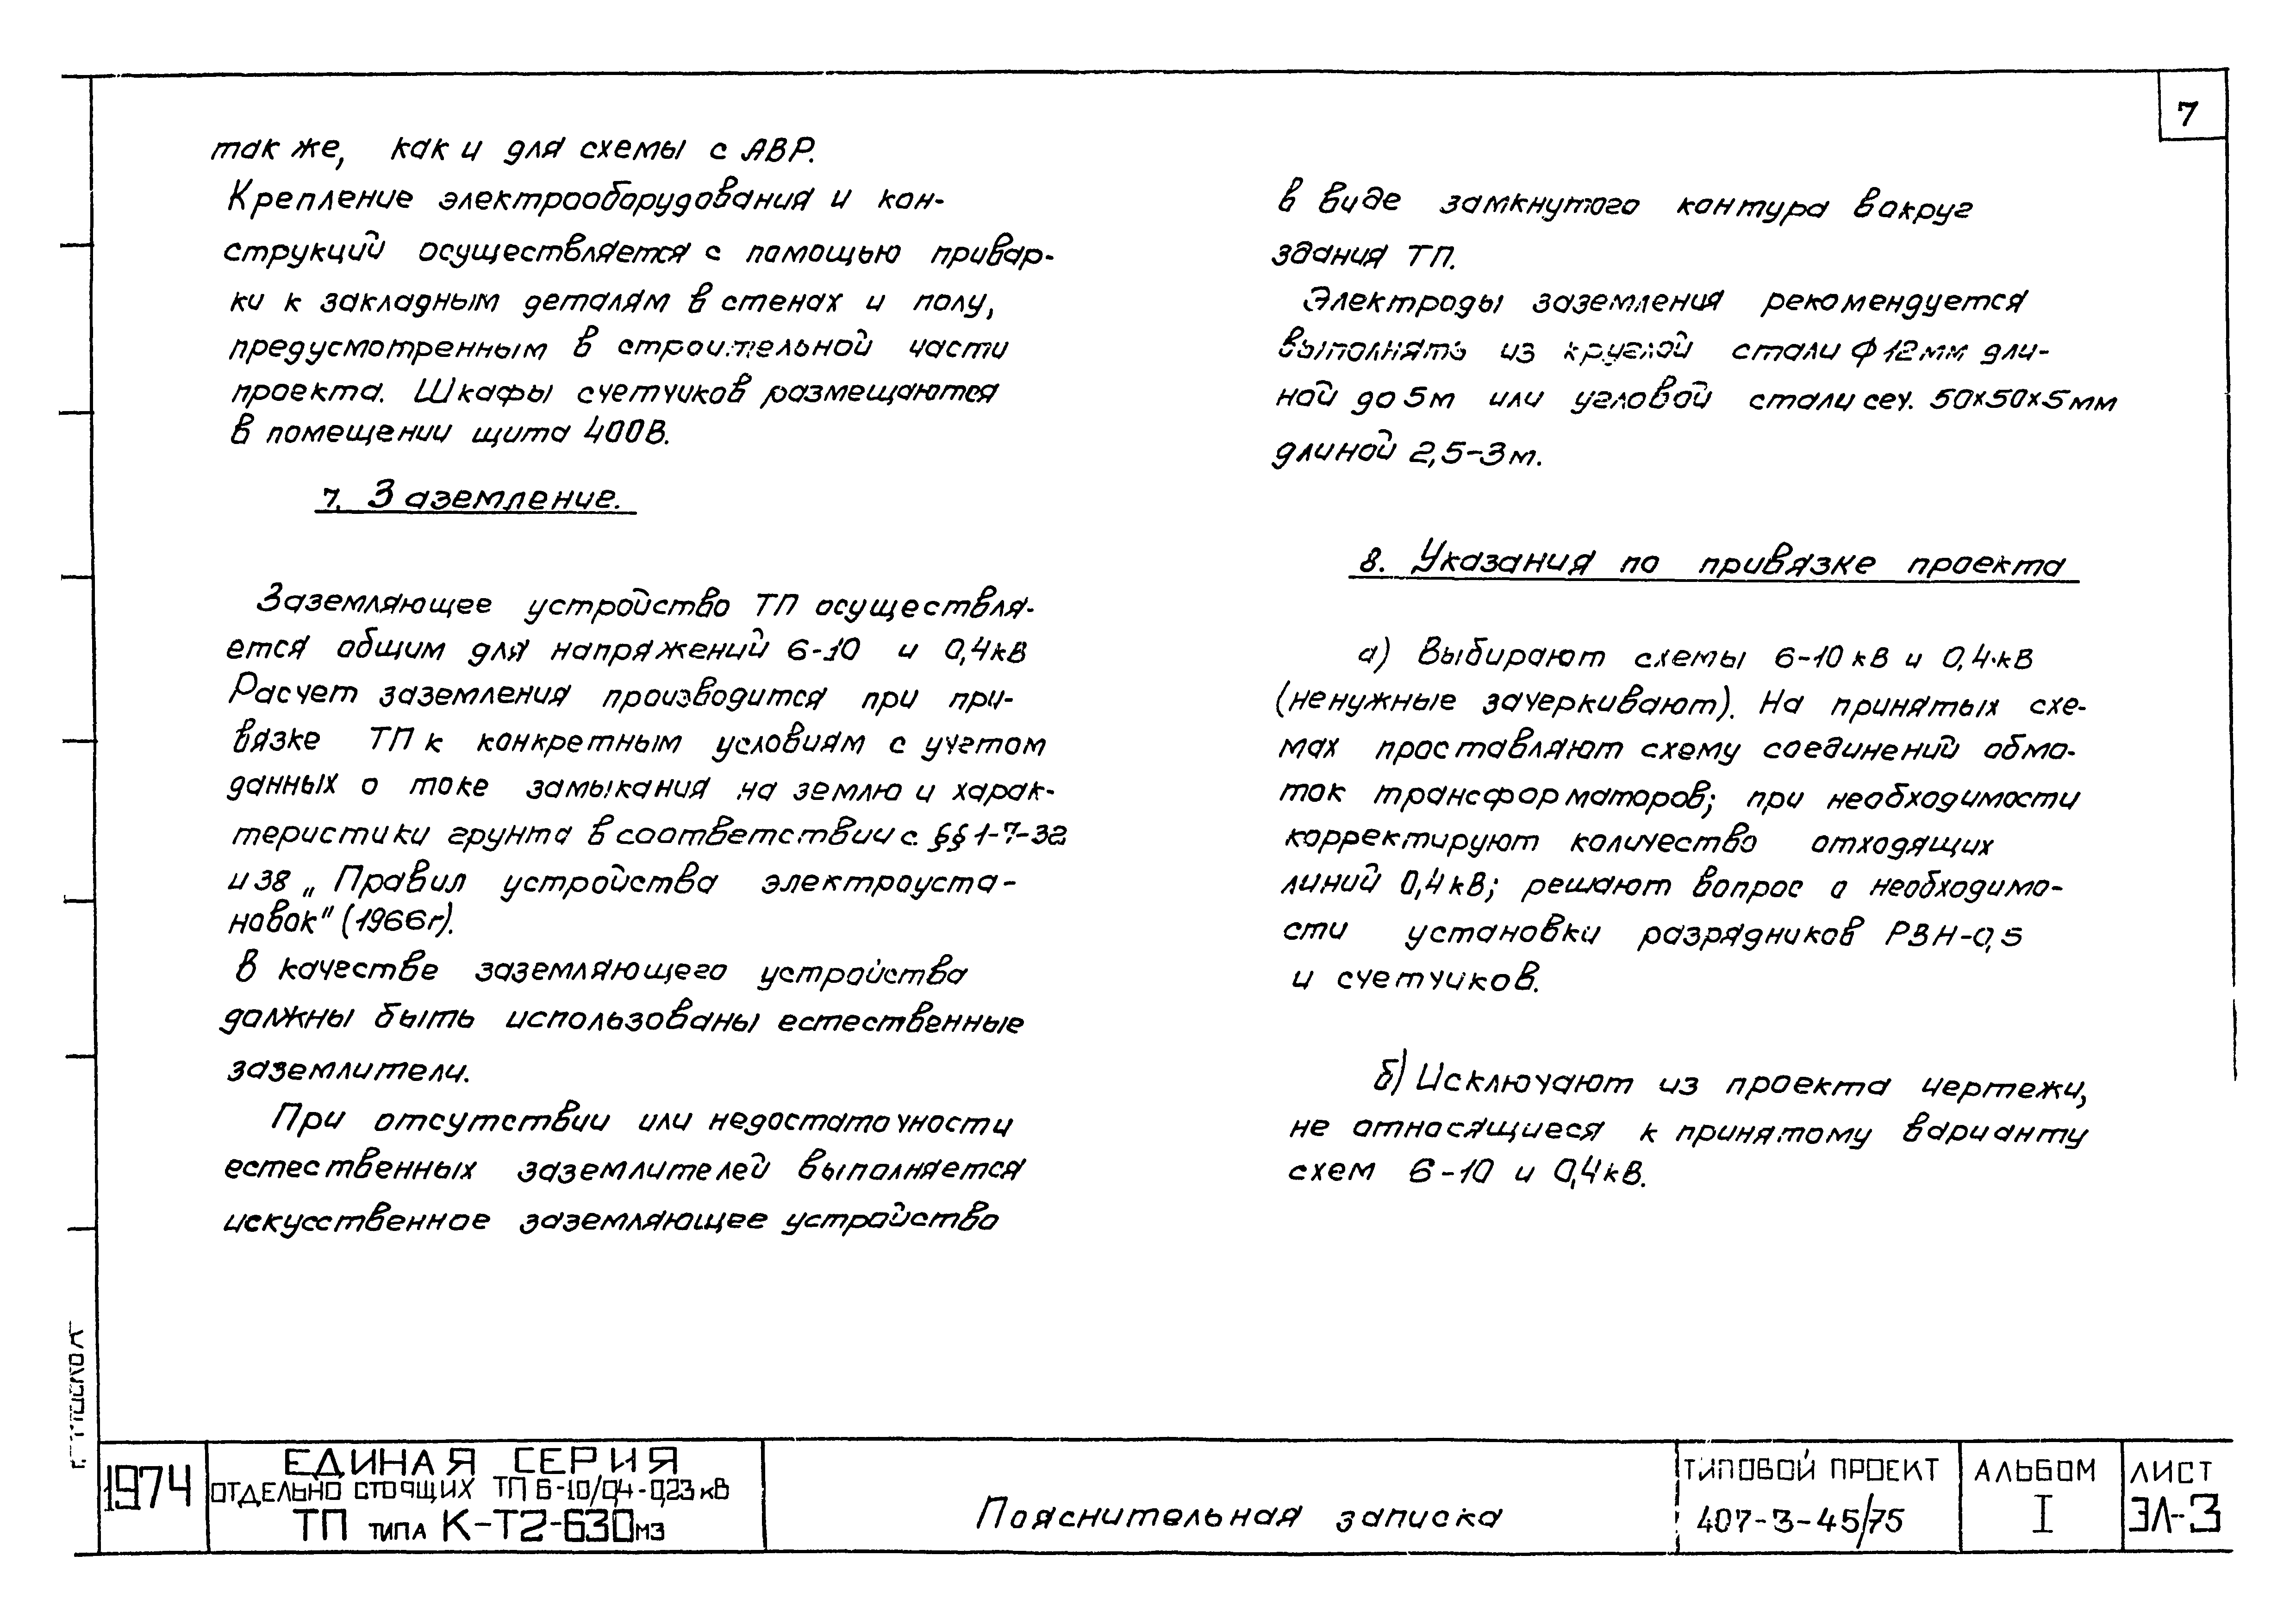 7
так же, как и для схемы с АВР.
Крепление электрооборудования и кон-
струкций осуществляется с помощью привар-
ки к закладным деталям в стенах и полу,
предусмотренным в строительной части
проекта. Шкафы счетчиков размещаются
в помещении щита 400В.
7. Заземление.
Заземляющее устройство ТП осуществля-
ется общим для напряжений 6-10 и 0,4кВ
Расчет заземления производится при при-
вязке ТП к конкретным условиям с учетом
данных о токе замыкания на землю и харак-
теристики грунта в соответствии с §§ 1-7-32
и 38 „Правил устройства электроуста-
новок" (1966г).
В качестве заземляющего устройства
должны быть использованы естественные
заземлители.
При отсутствии или недостаточности
естественных заземлителей выполняется
искусственное заземляющее устройство
в виде замкнутого контура вокруг
здания ТП.
Электроды заземления рекомендуется
выполнять из круглой стали ф 12мм дли-
ной до 5м или угловой стали сеч. 50×50×5мм
длиной 2,5-3м.
8. Указания по привязке проекта
а) Выбирают схемы 6-10 кВ и 0,4 кВ
(ненужные зачеркивают). На принятых схе-
мах проставляют схему соединений обмо-
ток трансформаторов; при необходимости
корректируют количество отходящих
линий 0,4 кВ; решают вопрос о необходимо-
сти установки разрядников РВН-0,5
и счетчиков.
б) Исключают из проекта чертежи,
не относящиеся к принятому варианту
схем 6-10 и 0,4кВ.
1974
ЕДИНАЯ СЕРИЯ
ОТДЕЛЬНО СТОЯЩИХ ТП 6-10/0,4-0,23 кВ
ТП ТИПА К-Т2-630 МЗ
Пояснительная записка
ТИПОВОЙ ПРОЕКТ
407-3-45/75
АЛЬБОМ
I
ЛИСТ
ЭЛ-3